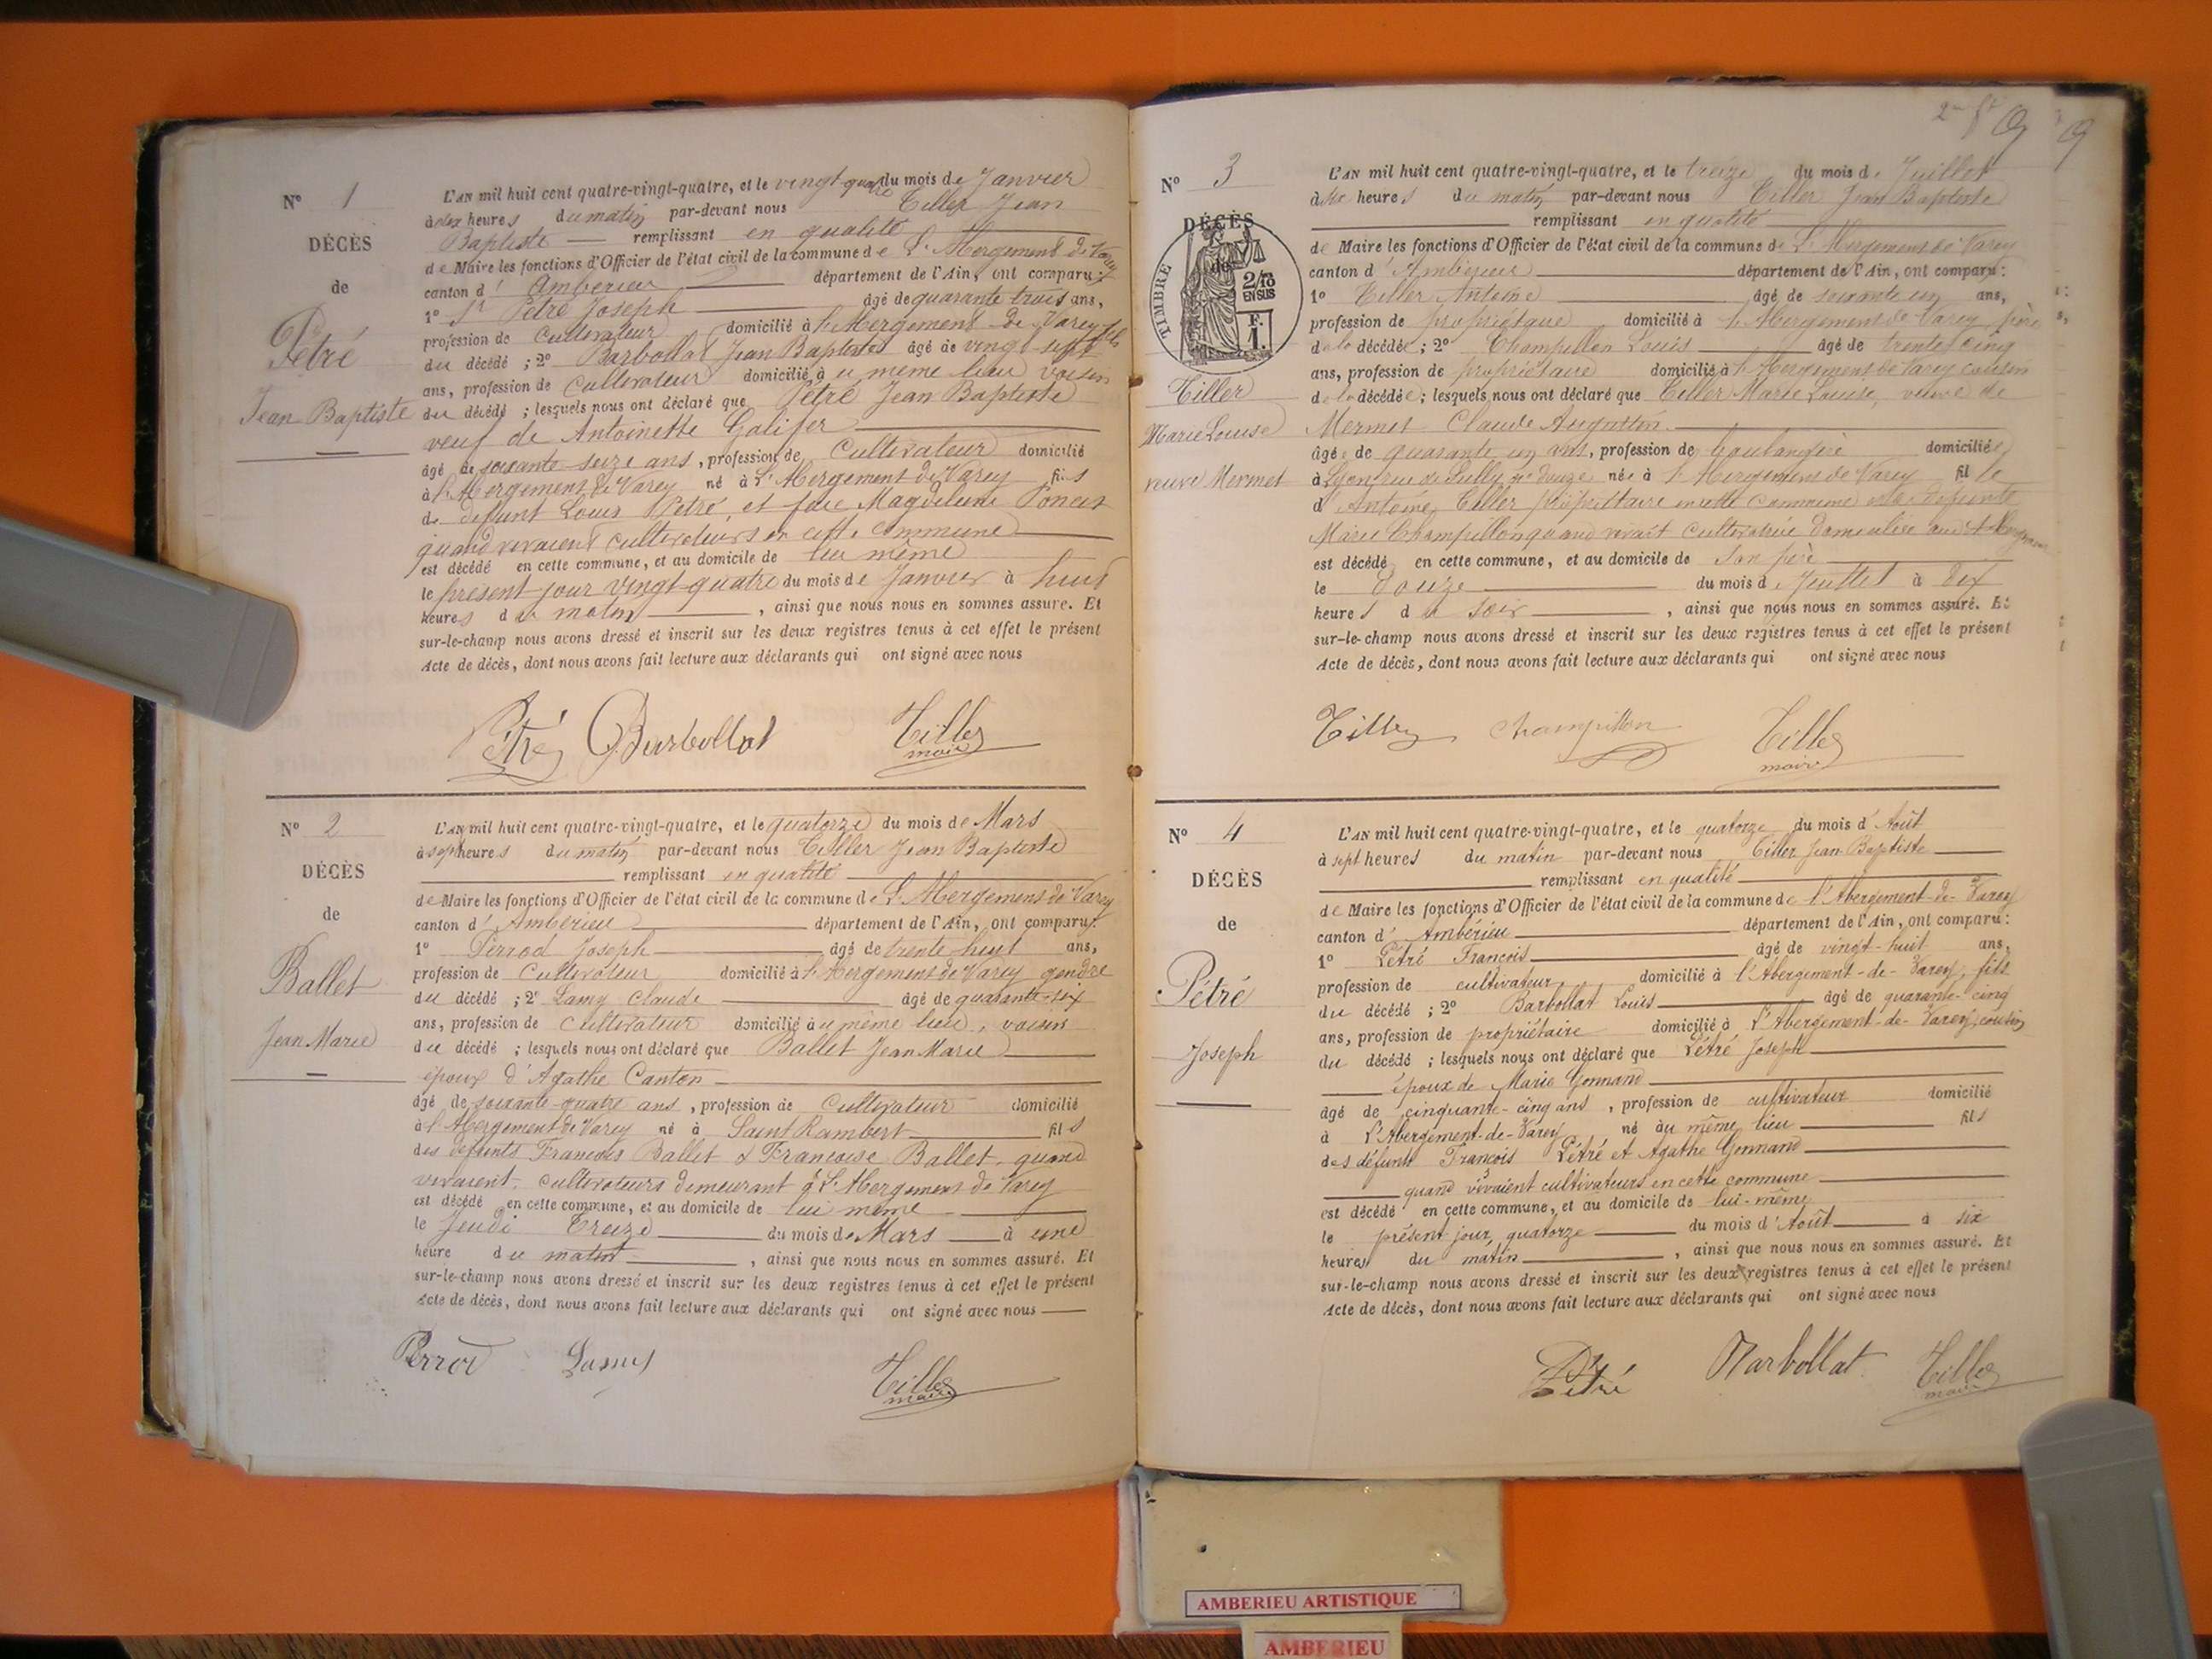 N° 1
DÉCÈS
de
Pétré
Jean Baptiste
L'AN mil huit cent quatre-vingt-quatre, et le vingt-quatre du mois de Janvier
à dix heures du matin par-devant nous Tiller Jean
Baptiste remplissant en qualité
de Maire les fonctions d'Officier de l'état civil de la commune de L'Abergement de Varey
canton d'Ambérieu département de l'Ain, ont comparu:
1° Sr Pétré Joseph âgé de quarante trois ans,
profession de Cultivateur domicilié à l'Abergement de Varey fils
du décédé ; 2° Barbollat Jean Baptiste âgé de vingt-sept
ans, profession de Cultivateur domicilié à u même lieu voisin
du décédé ; lesquels nous ont déclaré que Pétré Jean Baptiste
veuf de Antoinette Galifer
âgé de soixante-seize ans, profession de Cultivateur domicilié
à l'Abergement de Varey né à L'Abergement de Varey fils
de défunt Louis Pétré, et feue Magdeleine Poncet
quand vivaient cultivateurs en cette commune
est décédé en cette commune, et au domicile de lui même
le présent jour vingt-quatre du mois de Janvier à huit
heures du matin, ainsi que nous nous en sommes assuré. Et
sur-le-champ nous avons dressé et inscrit sur les deux registres tenus à cet effet le présent
Acte de décès, dont nous avons fait lecture aux déclarants qui ont signé avec nous
Pétré Barbollat Tiller
maire
N° 2
DÉCÈS
de
Ballet
Jean Marie
L'AN mil huit cent quatre-vingt-quatre, et le quatorze du mois de Mars
à sept heures du matin par-devant nous Tiller Jean Baptiste
remplissant en qualité
de Maire les fonctions d'Officier de l'état civil de la commune de L'Abergement de Varey
canton d'Ambérieu département de l'Ain, ont comparu:
1° Perrod Joseph âgé de trente huit ans,
profession de Cultivateur domicilié à l'Abergement de Varey gendre
du décédé ; 2° Lamy Claude âgé de quarante-six
ans, profession de Cultivateur domicilié à u même lieu, voisin
du décédé ; lesquels nous ont déclaré que Ballet Jean Marie
époux d'Agathe Canton
âgé de soixante-quatre ans, profession de Cultivateur domicilié
à l'Abergement de Varey né à Saint Rambert fils
des défunts François Ballet & Françoise Ballet, quand
vivaient cultivateurs demeurant à L'Abergement de Varey
est décédé en cette commune, et au domicile de lui même
le Jeudi Treize du mois de Mars à une
heure du matin, ainsi que nous nous en sommes assuré. Et
sur-le-champ nous avons dressé et inscrit sur les deux registres tenus à cet effet le présent
Acte de décès, dont nous avons fait lecture aux déclarants qui ont signé avec nous
Perrod Lamy Tiller
maire
9 9
N° 3
DÉCÈS
de
TIMBRE
2/10
EN SUS
F.
1.
Tiller
Marie Louise
veuve Mermet
L'AN mil huit cent quatre-vingt-quatre, et le treize du mois de Juillet
à six heures du matin par-devant nous Tiller Jean Baptiste
remplissant en qualité
de Maire les fonctions d'Officier de l'état civil de la commune de L'Abergement de Varey
canton d'Ambérieu département de l'Ain, ont comparu:
1° Tiller Antoine âgé de soixante un ans,
profession de propriétaire domicilié à l'Abergement de Varey père
de la décédée ; 2° Champillon Louis âgé de trente cinq
ans, profession de propriétaire domicilié à l'Abergement de Varey cousin
de la décédée ; lesquels nous ont déclaré que Tiller Marie Louise, veuve de
Mermet Claude Augustin
âgée de quarante un ans, profession de boulangère domiciliée
à Lyon rue de Sully n° douze née à l'Abergement de Varey fille
d'Antoine Tiller propriétaire en cette commune et de défunte
Marie Champillon quand vivait cultivatrice domiciliée audit Abergement
est décédée en cette commune, et au domicile de son père
le douze du mois d Juillet à dix
heures du soir, ainsi que nous nous en sommes assuré. Et
sur-le-champ nous avons dressé et inscrit sur les deux registres tenus à cet effet le présent
Acte de décès, dont nous avons fait lecture aux déclarants qui ont signé avec nous
Tiller Champillon Tiller
maire
N° 4
DÉCÈS
de
Pétré
Joseph
L'AN mil huit cent quatre-vingt-quatre, et le quatorze du mois d'Août
à sept heures du matin par-devant nous Tiller Jean Baptiste
remplissant en qualité
de Maire les fonctions d'Officier de l'état civil de la commune de l'Abergement-de-Varey
canton d'Ambérieu département de l'Ain, ont comparu:
1° Pétré François âgé de vingt-huit ans,
profession de cultivateur domicilié à l'Abergement-de-Varey, fils
du décédé ; 2° Barbollat Louis âgé de quarante-cinq
ans, profession de propriétaire domicilié à L'Abergement-de-Varey, cousin
du décédé ; lesquels nous ont déclaré que Pétré Joseph
époux de Marie Gonnand
âgé de cinquante-cinq ans, profession de cultivateur domicilié
à L'Abergement-de-Varey né au même lieu fils
des défunts François Pétré et Agathe Gonnand
quand vivaient cultivateurs en cette commune
est décédé en cette commune, et au domicile de lui-même
le présent jour, quatorze du mois d'Août à six
heures du matin, ainsi que nous nous en sommes assuré. Et
sur-le-champ nous avons dressé et inscrit sur les deux registres tenus à cet effet le présent
Acte de décès, dont nous avons fait lecture aux déclarants qui ont signé avec nous
Pétré Barbollat Tiller
maire
AMBERIEU ARTISTIQUE
AMBERIEU